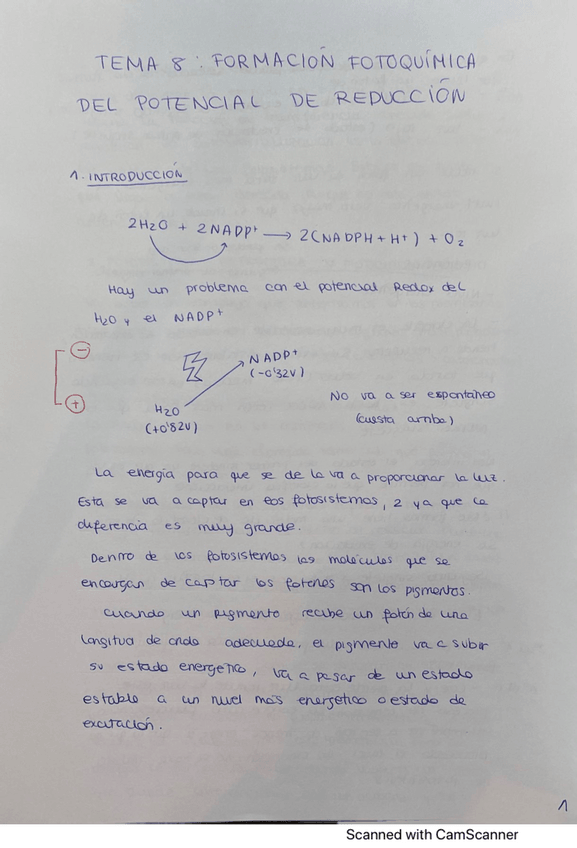 TEMA 8: FORMACIÓN FOTOQUÍMICA
DEL POTENCIAL DE REDUCCIÓN
1. INTRODUCCIÓN
2H2O + 2NADP+ → 2(NADPH + H+) + O2
Hay un problema con el potencial Redox del
H2O y el NADP+
⊖
NADP+
(-0'32V)
⊕
H2O
(+0'82V)
No va a ser espontáneo
(cuesta arriba)
La energía para que se de la va a proporcionar la luz.
Esta se va a captar en los fotosistemas, 2 ya que la
diferencia es muy grande.
Dentro de los fotosistemas las moléculas que se
encargan de captar los fotones son los pigmentos.
Cuando un pigmento recibe un fotón de una
longitud de onda adecuada, el pigmento va a subir
su estado energético, va a pasar de un estado
estable a un nivel más energético o estado de
excitación.
1
Scanned with CamScanner